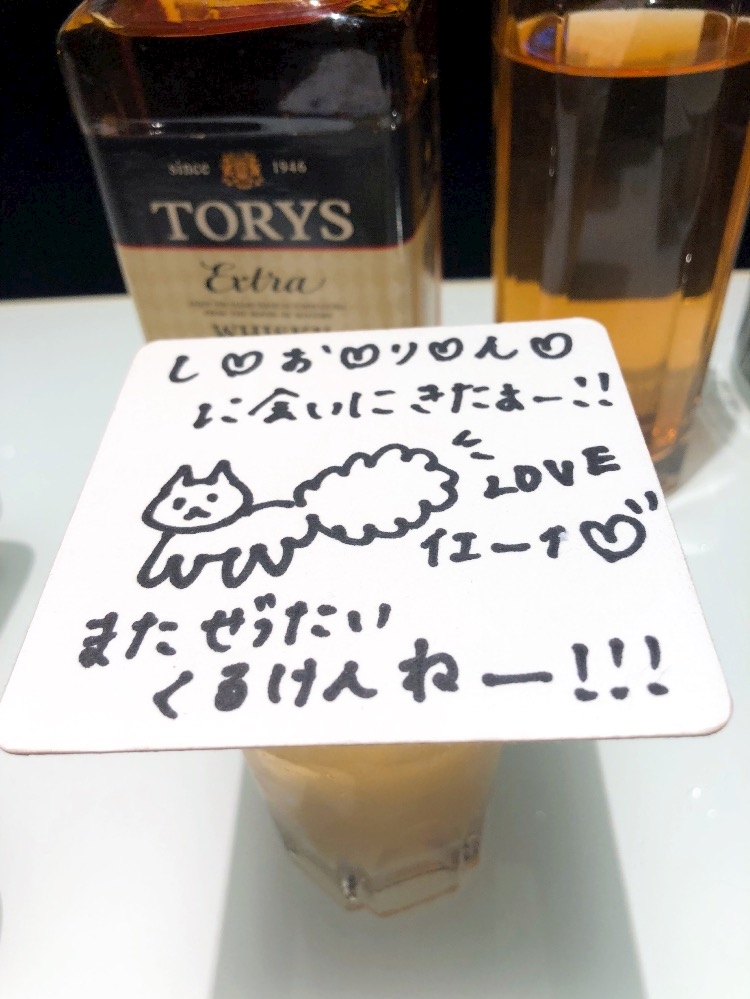 since 1946
TORYS
Extra
WHISKY
し♡お♡り♡ん♡
に会いにきたよー!!
LOVE
イエーイ♡
またぜったい
くるけんねー!!!